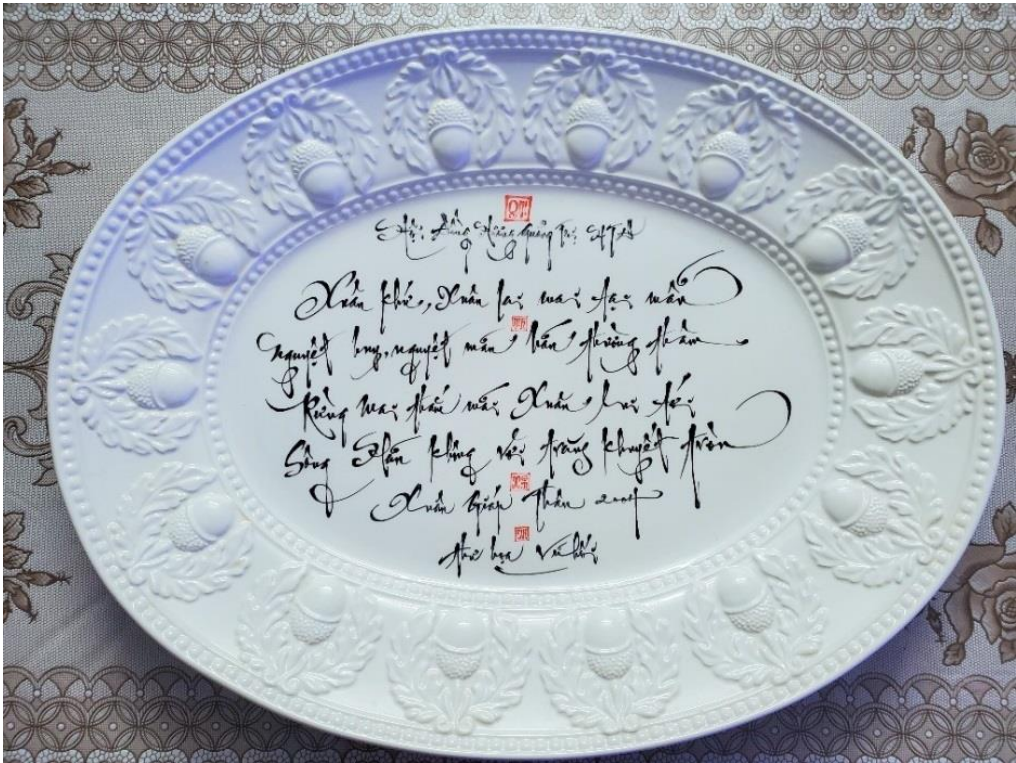 QT
Hội Đồng Hương Quảng Trị
Xuân khứ, Xuân lai mai tại mãn
nguyệt hụy, nguyệt mãn hán thường
Rừng mai thắm mãi Xuân lui tới
Sông Hán không vơi trăng khuyết tròn
Xuân Giáp Thân 2004
thư họa Vũ Hối